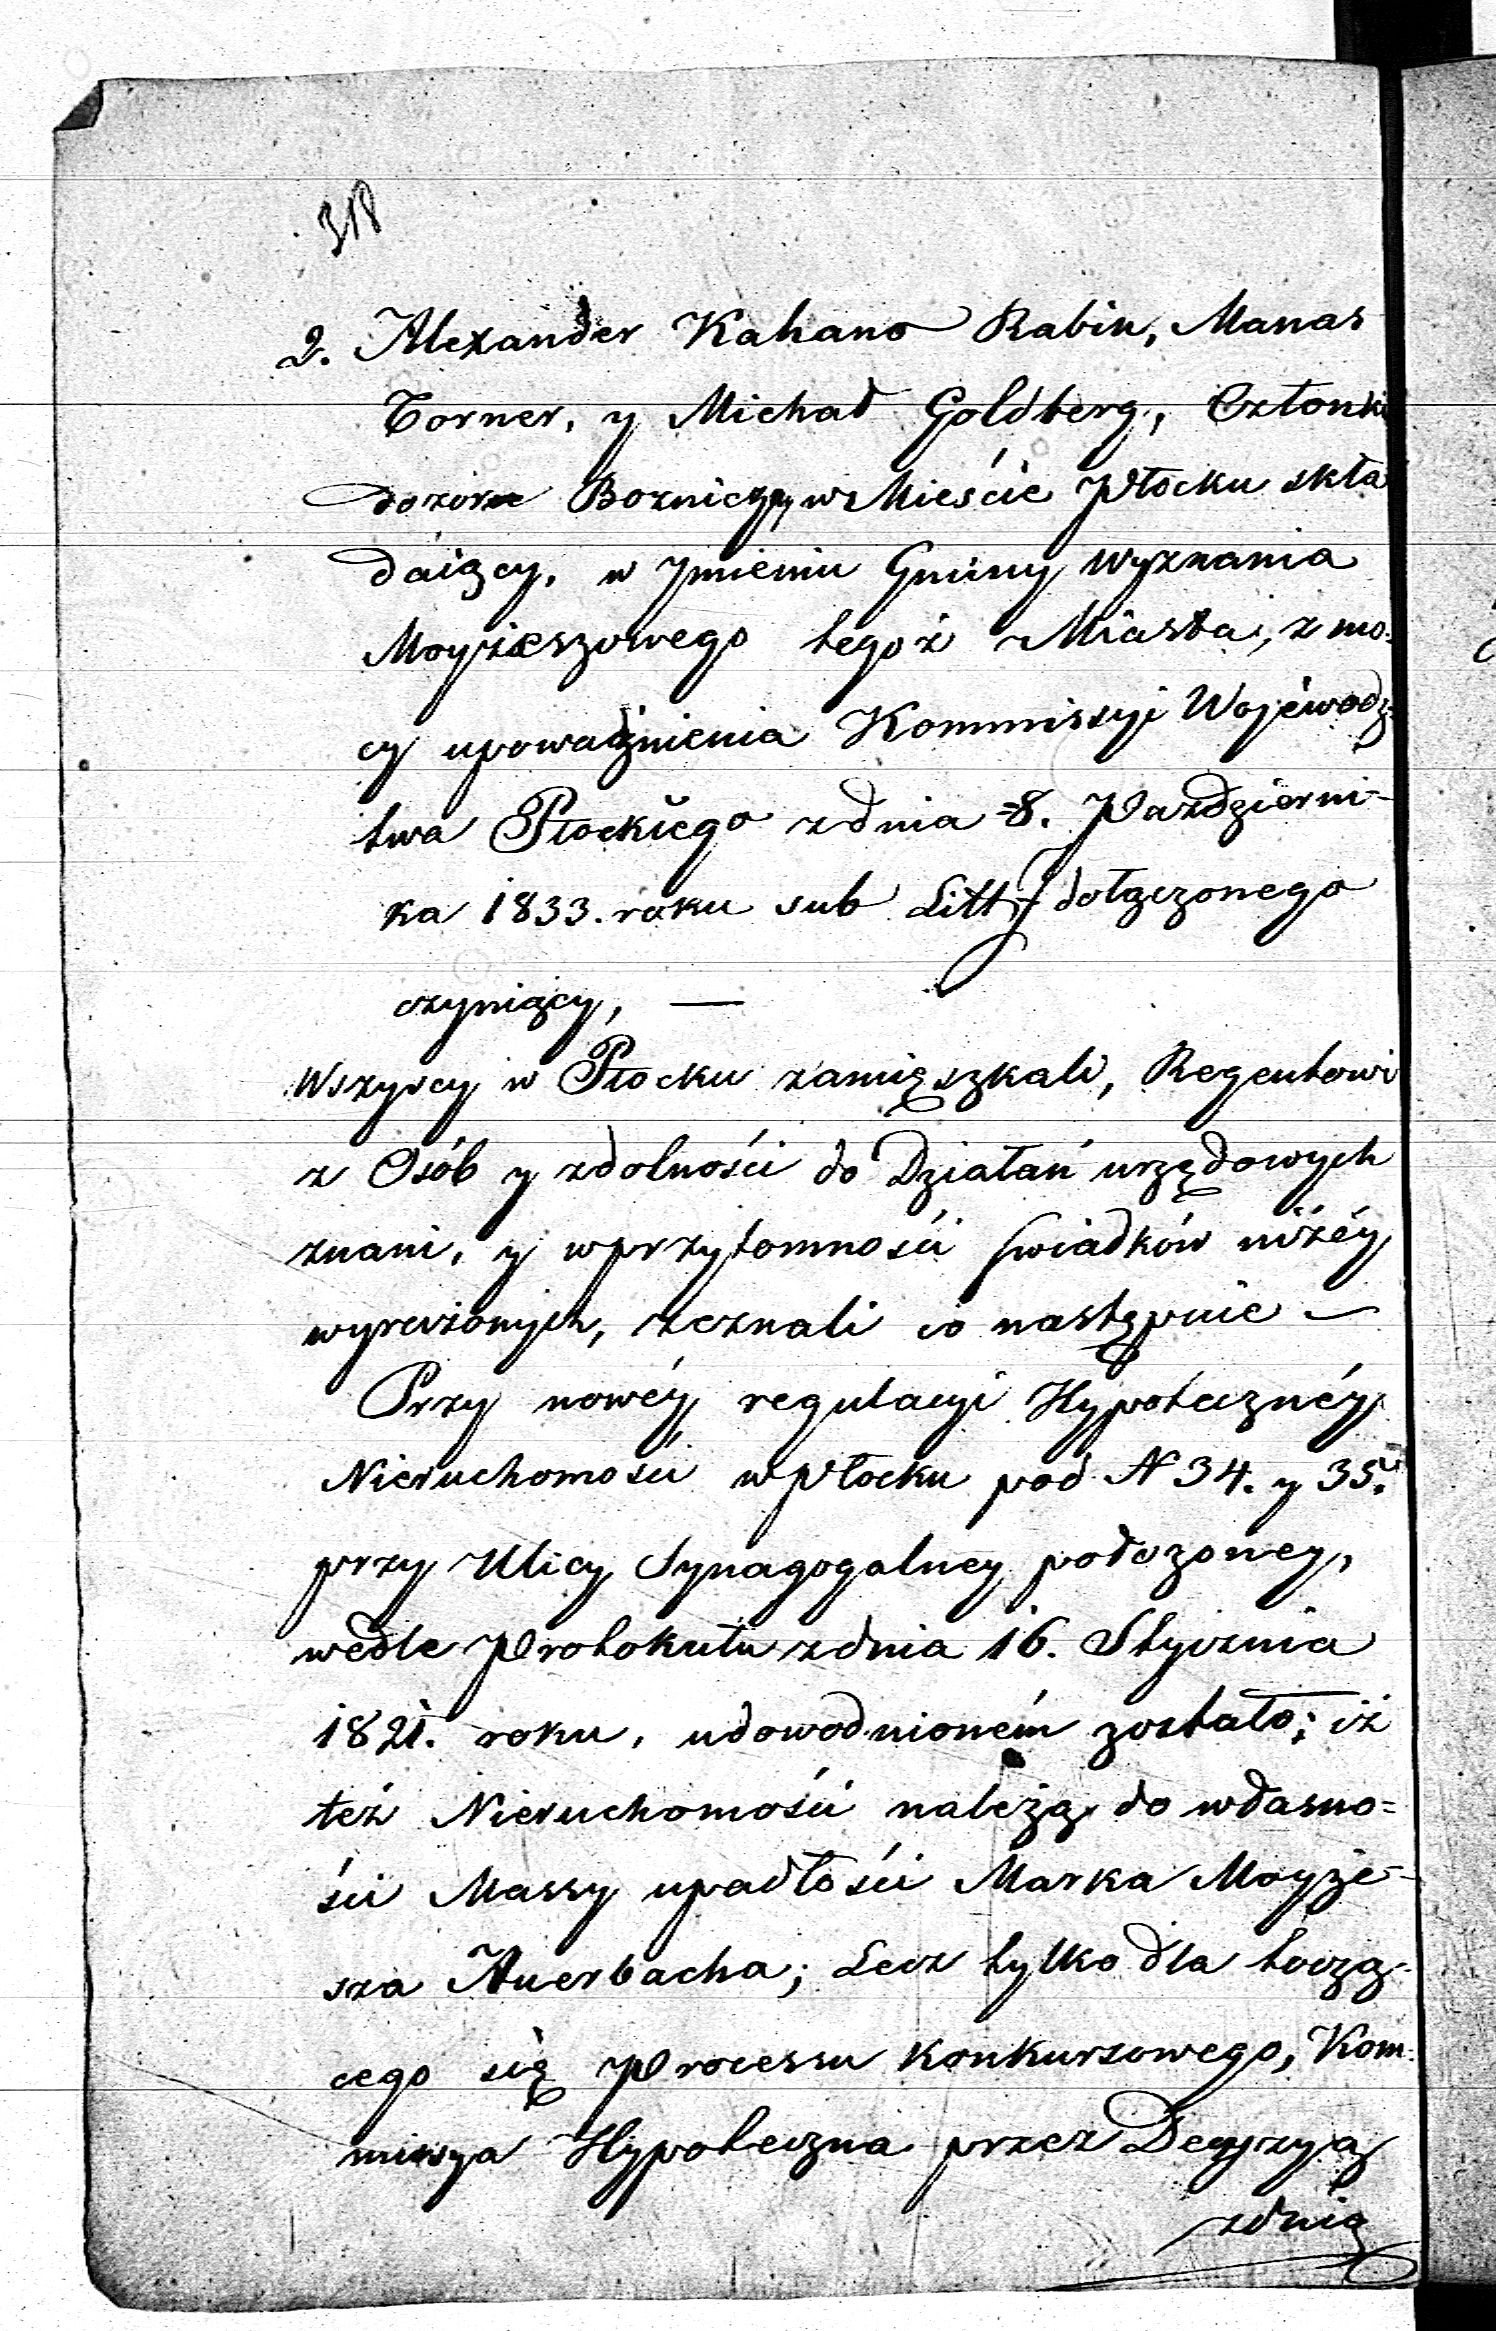 318
2. Alexander Kahano Rabin, Manas
Torner, y Michał Goldberg, Członki
dozoru Bozniczy w Mieście Płocku skła
daiący, w Jmieniu Gminy wyznania
Moyżeszowego tegoż Miasta, z mo-
cy upoważnienia Kommissyi Wojewodz
twa Płockiego z dnia 8. Październi-
ka 1833. roku sub Litt f dołączonego
czyniący, —
Wszyscy w Płocku zamięszkali, Regentowi
z Osób y zdolności do Działań urzędowych
znani, y w przytomności świadków niżéy
wyrażonych, zeznali co następuie —
Przy nowéy regulacyi Hypotecznéy
Nieruchomości w Płocku pod N 34. y 35.
przy Ulicy Synagogalney położoney,
wedle Protokułu z dnia 16. Stycznia
1821. roku, udowodnioném zostało; iż
też Nieruchomości należą do własno=
ści Massy upadłości Marka Moyże-
sza Auerbacha; Lecz tylko dla toczą-
cego się Processu konkursowego, Kom-
missya Hypoteczna przez Decyzyą
z dnia